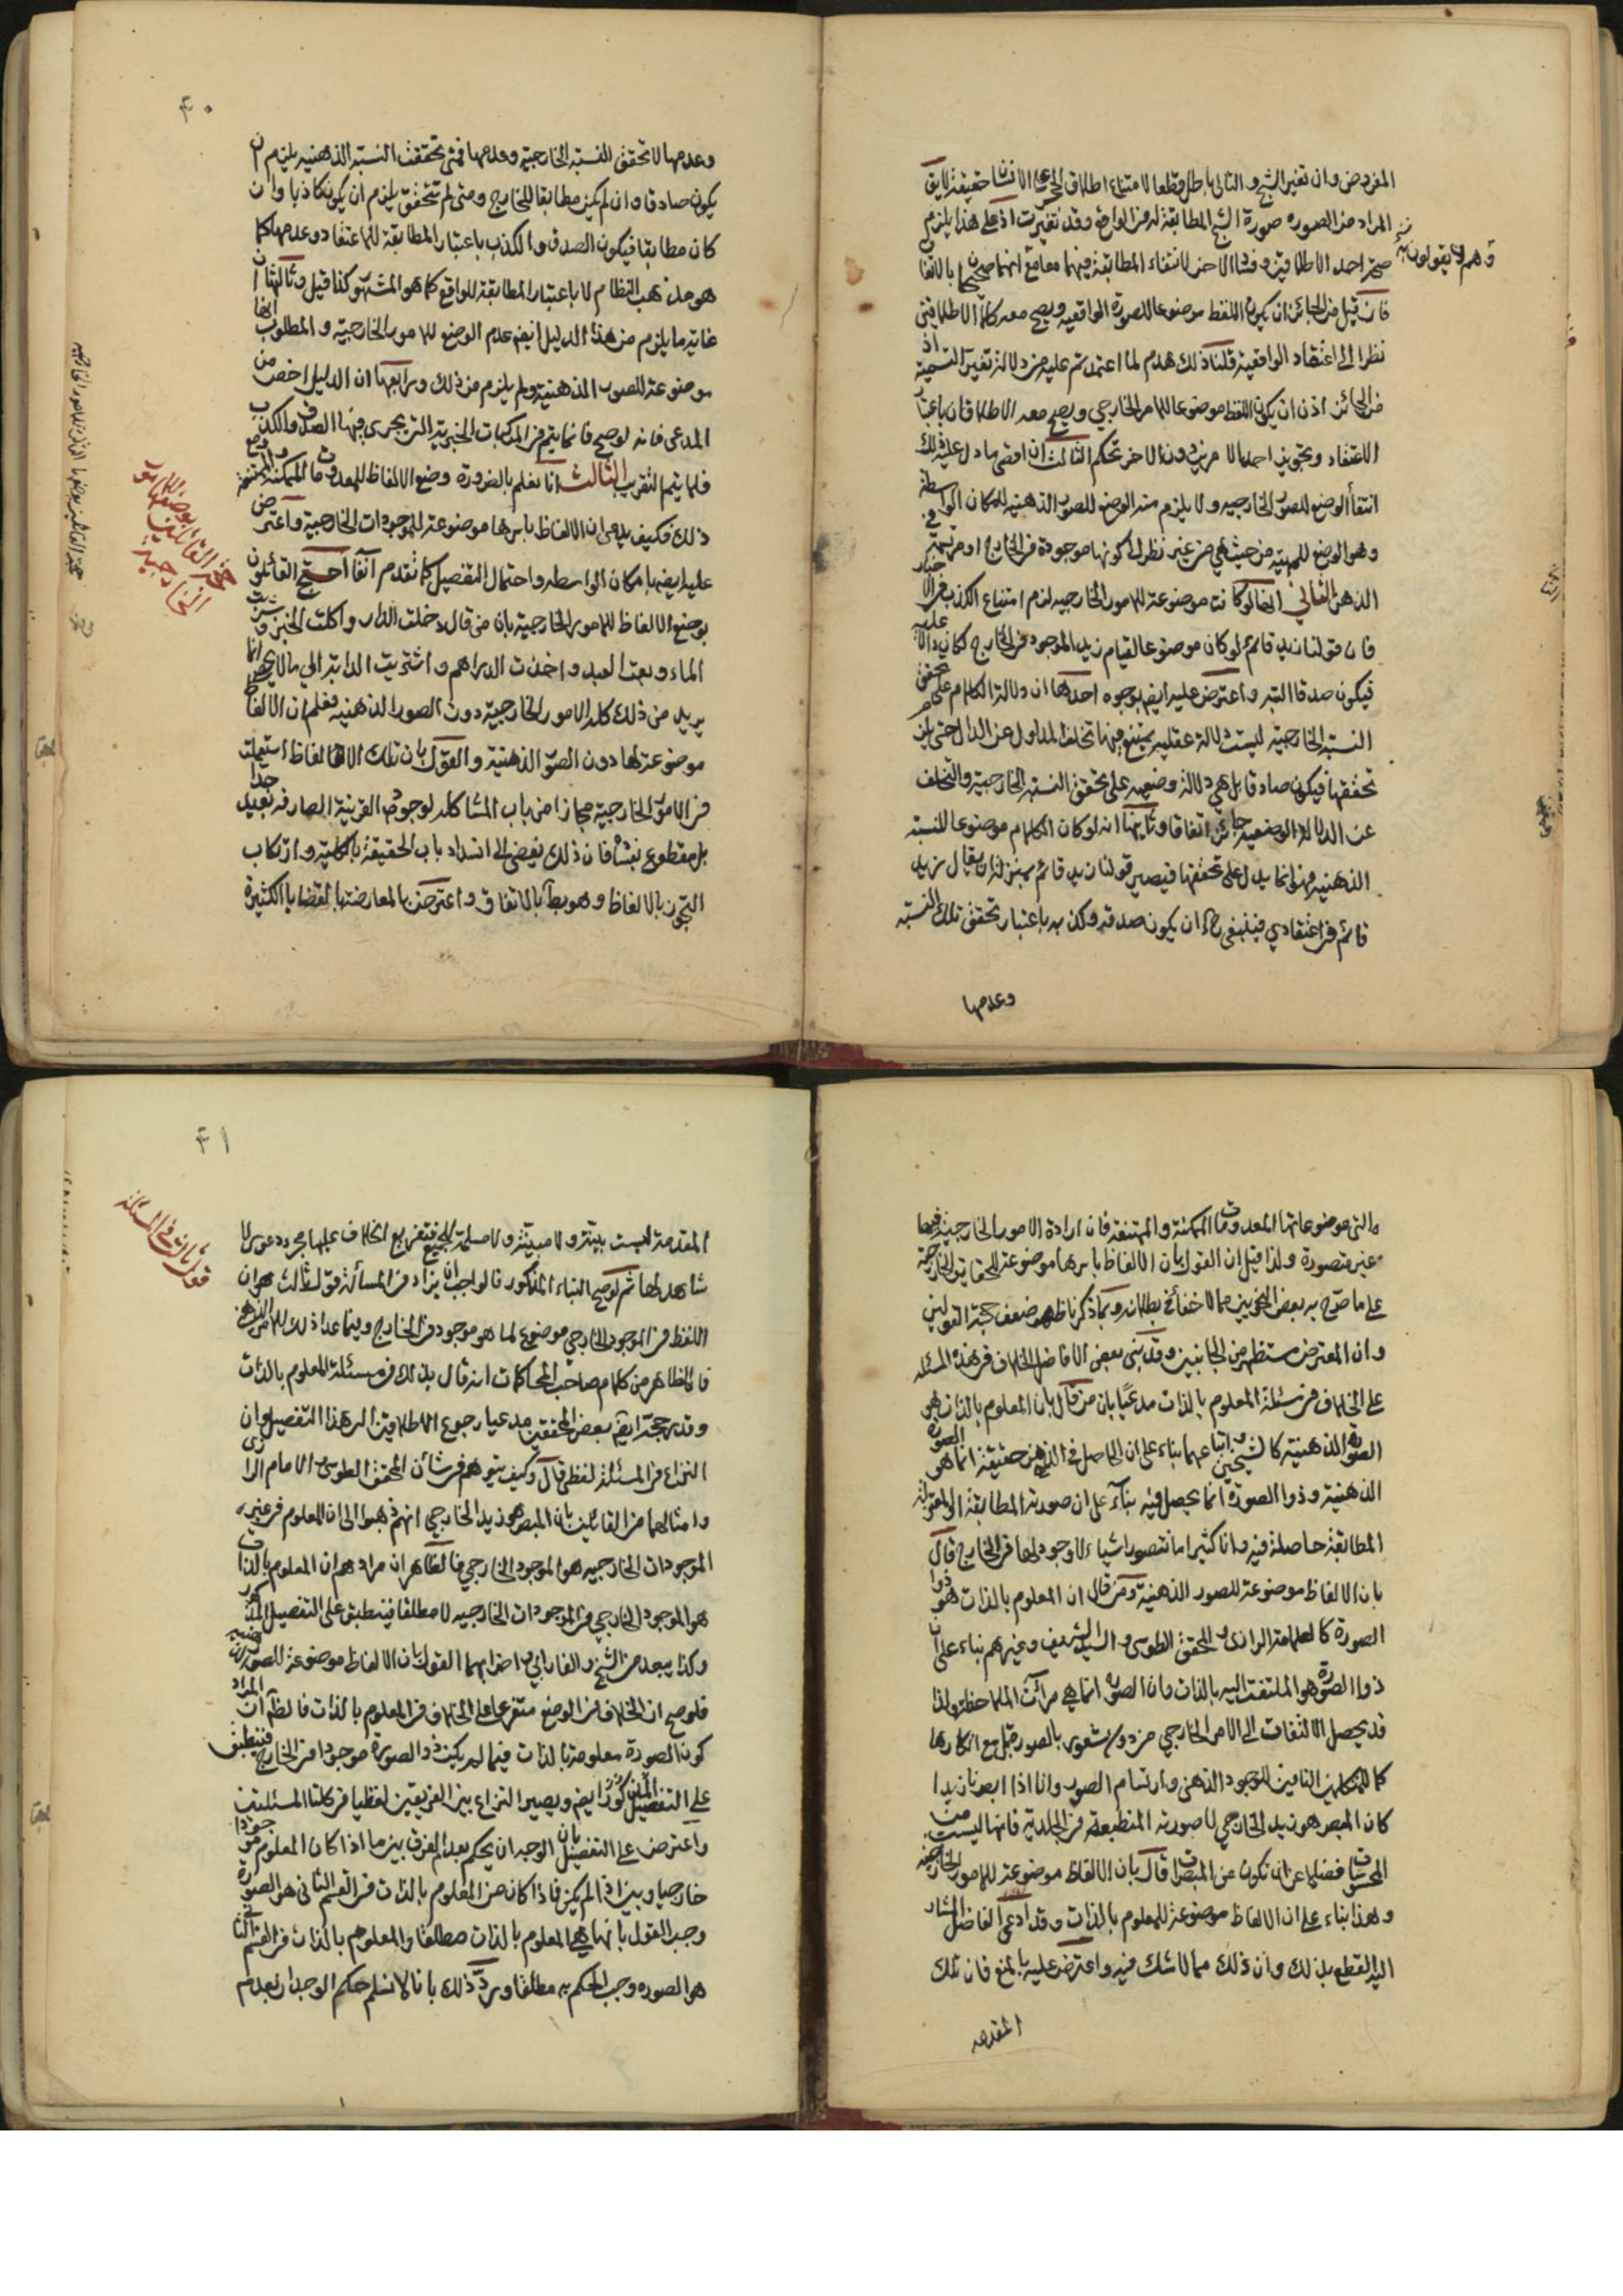 المفروض وان تغير الشبح والثاني باطل قطعا لامتناع اطلاق الحجر على الانسان حقيقة لا يق
المراد من الصورة صورة الشبح المطابقة له في الواقع وقد تغيرت اذ على هذا يلزم
صحة احد الاطلاقين وفساد الاخر لانتفاء المطابقة فيهما معا مع انهما صحيحان بالاتفاق
وهم لا يقولون به
فان قيل من الجائز ان يكون اللفظ موضوعا للصورة الواقعية ويصح معه كلا الاطلاقين
نظرا الى اعتقاد الواقعية قلنا ذلك هدم لما اعتمدتم عليه من دلالة تغير التسمية اذ
من الجائز اذن ان يكون اللفظ موضوعا للامر الخارجي ويصح معه الاطلاقان باعتبار
الاعتقاد وتجويز احد الامرين دون الاخر تحكم الثالث ان اقصى ما دل عليه ذلك
انتفاء الوضع للصور الخارجيه ولا يلزم منه الوضع للصور الذهنيه لامكان الواسطة
وهو الوضع للمهية من حيث هي من غير نظر الى كونها موجودة في الخارج او مرتسمة في
الذهن الثاني انها لو كانت موضوعة للامور الخارجيه لزم امتناع الكذب في الاخبار
فان قولنا زيد قائم لو كان موضوعا لقيام زيد الموجود في الخارج لكان دالا عليه
فيكون صدقا البتة واعترض عليه ايضا بوجوه احدها ان دلالة الكلام على تحقق
النسبة الخارجية ليست دلالة عقلية يمتنع فيها تخلف المدلول عن الدال حتى يلزم
تحققها فيكون صادقا بل هي دلالة وضعية على تحقق النسبة الخارجية والتخلف
عن الدلالة الوضعية جائز اتفاقا وثانيها انه لو كان الكلام موضوعا للنسبة
الذهنيه فهو انما يدل على تحققها فيصير قولنا زيد قائم بمنزلة ان يقال زيد
قائم في اعتقادي فينبغي ح ان يكون صدقه وكذبه باعتبار تحقق تلك النسبة
وعدمها
٤٠
وعدمها لا تحقق النسبة الخارجية وعدمها فمتى تحققت النسبة الذهنيه يلزم ان
يكون صادقا وان لم يكن مطابقا للخارج ومتى لم تتحقق يلزم ان يكون كاذبا وان
كان مطابقا فيكون الصدق والكذب باعتبار المطابقة للاعتقاد وعدمها كما
هو مذهب النظام لا باعتبار المطابقة للواقع كما هو المشهور كذا قيل وثالثها ان
غاية ما يلزم من هذا الدليل ايضا عدم الوضع للامور الخارجية والمطلوب انها
موضوعة للصور الذهنية ولم يلزم من ذلك ورابعها ان الدليل اخص من
المدعى فانه لو صح فانما يتم في المركبات الخبرية التي يجري فيها الصدق والكذب
فلا يتم التقريب الثالث انا نعلم بالضرورة وضع الالفاظ للمعدومات الممكنة والممتنعة ومع
ذلك فكيف يدعى ان الالفاظ باسرها موضوعة للموجودات الخارجية واعترض
عليه ايضا بامكان الواسطه واحتمال التفصيل كما تقدم آنفا احتج القائلون
بوضع الالفاظ للامور الخارجية بان من قال دخلت الدار واكلت الخبز وشربت
الماء وبعت العبد واخذت الدراهم واشتريت الدابة الى ما لا يحصى انما
يريد من ذلك كله الامور الخارجية دون الصور الذهنيه فعلم ان الالفاظ
موضوعة لها دون الصور الذهنية والقول بان تلك الالفاظ استعملت
في الامور الخارجية مجازا من باب المشاكله لوجود القرينة الصارفه بعيد جدا
بل مقطوع بفساده فان ذلك يفضي الى انسداد باب الحقيقة بالكلية وارتكاب
التجوز بالالفاظ وهو بط بالاتفاق واعترض بالمعارضتها بالقضايا الكثيرة
حجة القائلين بوضعها للامور الخارجية
والتى موضوعاتها المعدومات الممكنة والممتنعة فان ارادة الامور الخارجية فيها
غير متصورة ولذا قيل ان القول بان الالفاظ باسرها موضوعة للحقايق الخارجية
على ما صرح به بعض النحويين مما لا خفاء في بطلانه وبما ذكرنا ظهر ضعف حجة القولين
وان المعترض مستظهر من الجانبين وقد بنى بعض الافاضل الخلاف في هذه المسئلة
على الخلاف في مسئلة المعلوم بالذات مدعيا بان من قال بان المعلوم بالذات هو
الصورة الذهنية كالشيخين واتباعهما بناء على ان الحاصل في الذهن حقيقة انما هو الصورة
الذهنية وذوا الصورة انما يحصل فيه بناء على ان صورته المطابقة
المطابقة حاصلة فيه وانا كثيرا ما نتصور اشياء لا وجود لها في الخارج قال
بان الالفاظ موضوعة للصور الذهنية ومن قال ان المعلوم بالذات هو ذوا
الصورة كالعلامة الرازي والمحقق الطوسي والسيد الشريف وغيرهم بناء على ان
ذوا الصورة هو الملتفت اليه بالذات وان الصورة انما هي مرآت الملاحظة ولذا
قد يحصل الالتفات الى الامر الخارجي من دون شعور بالصورة بل مع انكارها
كما للمتكلمين النافين للوجود الذهني وارتسام الصور وانا اذا ابصرنا زيدا
كان المبصر هو زيد الخارجي لا صورته المنطبعة في الجليدية فانها ليست من
المحسوسات فضلا عن ان تكون من المبصرات قال بان الالفاظ موضوعة للامور الخارجية
وهذا بناء على ان الالفاظ موضوعة للمعلوم بالذات وقد ادعى الفاضل المشار
اليه القطع بذلك وان ذلك مما لا شك فيه واعترض عليه بالمنع فان تلك
المقدمه
٤١
المقدمة ليست بينة ولا مبينة ولا مسلمة للجميع فتفريع الخلاف عليها مجرد دعوى لا
شاهد لها ثم لو صح البناء المذكور فالواجب ان يزاد في المسألة قول ثالث هو ان
اللفظ في الموجود الخارجي موضوع لما هو موجود في الخارج وفيما عدا ذلك للامر الذهني
فالظاهر من كلام صاحب المحاكمات انه قال بذلك في مسئلة المعلوم بالذات
وقد رجحه ايضا بعض المحققين مدعيا رجوع الاطلاقين الى هذا التفصيل وان
النزاع في المسئلة لفظي قال وكيف يتوهم في شأن المحقق الطوسي والامام الرازي
وامثالهما من القائلين بان المبصر هو زيد الخارجي انهم ذهبوا الى ان المعلوم في غير
الموجودات الخارجيه هو الموجود الخارجي فالظاهر ان مرادهم ان المعلوم بالذات
هو الموجود الخارجي في الموجودات الخارجيه لا مطلقا فينطبق على التفصيل المذكور
وكذا يبعد من الشيخ والفارابي واضرابهما القول بان الالفاظ موضوعة للصور الذهنية
فلو صح ان الخلاف في الوضع متفرع على الخلاف في المعلوم بالذات فالظ ان المراد
كون الصورة معلومة بالذات فيما لم يكن ذو الصورة موجودا في الخارج فينطبق
على التفصيل المذكور ايضا ويصير النزاع بين الفريقين لفظيا في كلتا المسئلتين
واعترض على التفصيل بان الوجدان يحكم بعدم الفرق بين ما اذا كان المعلوم موجودا
خارجيا وبين اذا لم يكن فاذا كان من المعلوم بالذات في القسم الثاني هو الصورة
وجب القول بانها هي المعلوم بالذات مطلقا والمعلوم بالذات في القسم الثاني
هو الصوره وجب الحكم به مطلقا ورد ذلك بانا لا نسلم حكم الوجدان بعدم
قول ثالث في المسئلة